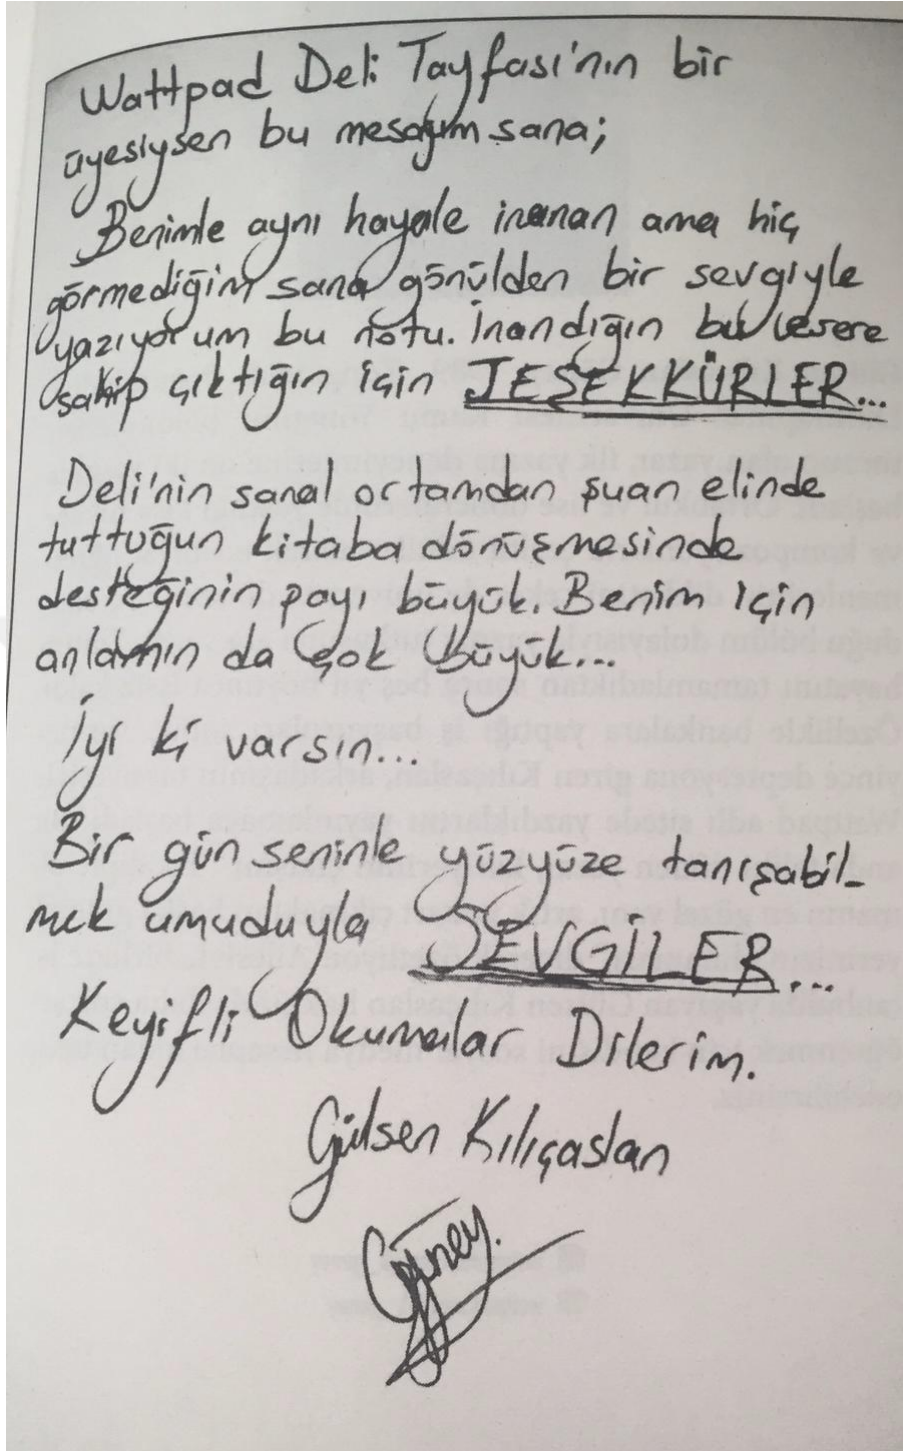 Wattpad Deli Tayfası'nın bir
üyesiysen bu mesajım sana;
Benimle aynı hayale inanan ama hiç
görmediğim sana gönülden bir sevgiyle
yazıyorum bu notu. İnandığın bu esere
sahip çıktığın için TEŞEKKÜRLER...
Deli'nin sanal ortamdan şuan elinde
tuttuğun kitaba dönüşmesinde
desteğinin payı büyük. Benim için
anlamın da çok büyük...
İyi ki varsın...
Bir gün seninle yüzyüze tanışabil-
mek umuduyla SEVGİLER...
Keyifli Okumalar Dilerim.
Gülsen Kılıçaslan
Güney.